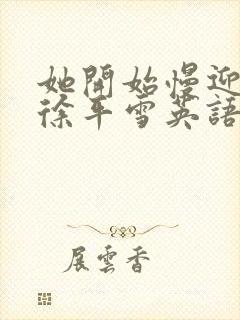 她開始慢迎
徐平雪英語
展雲香